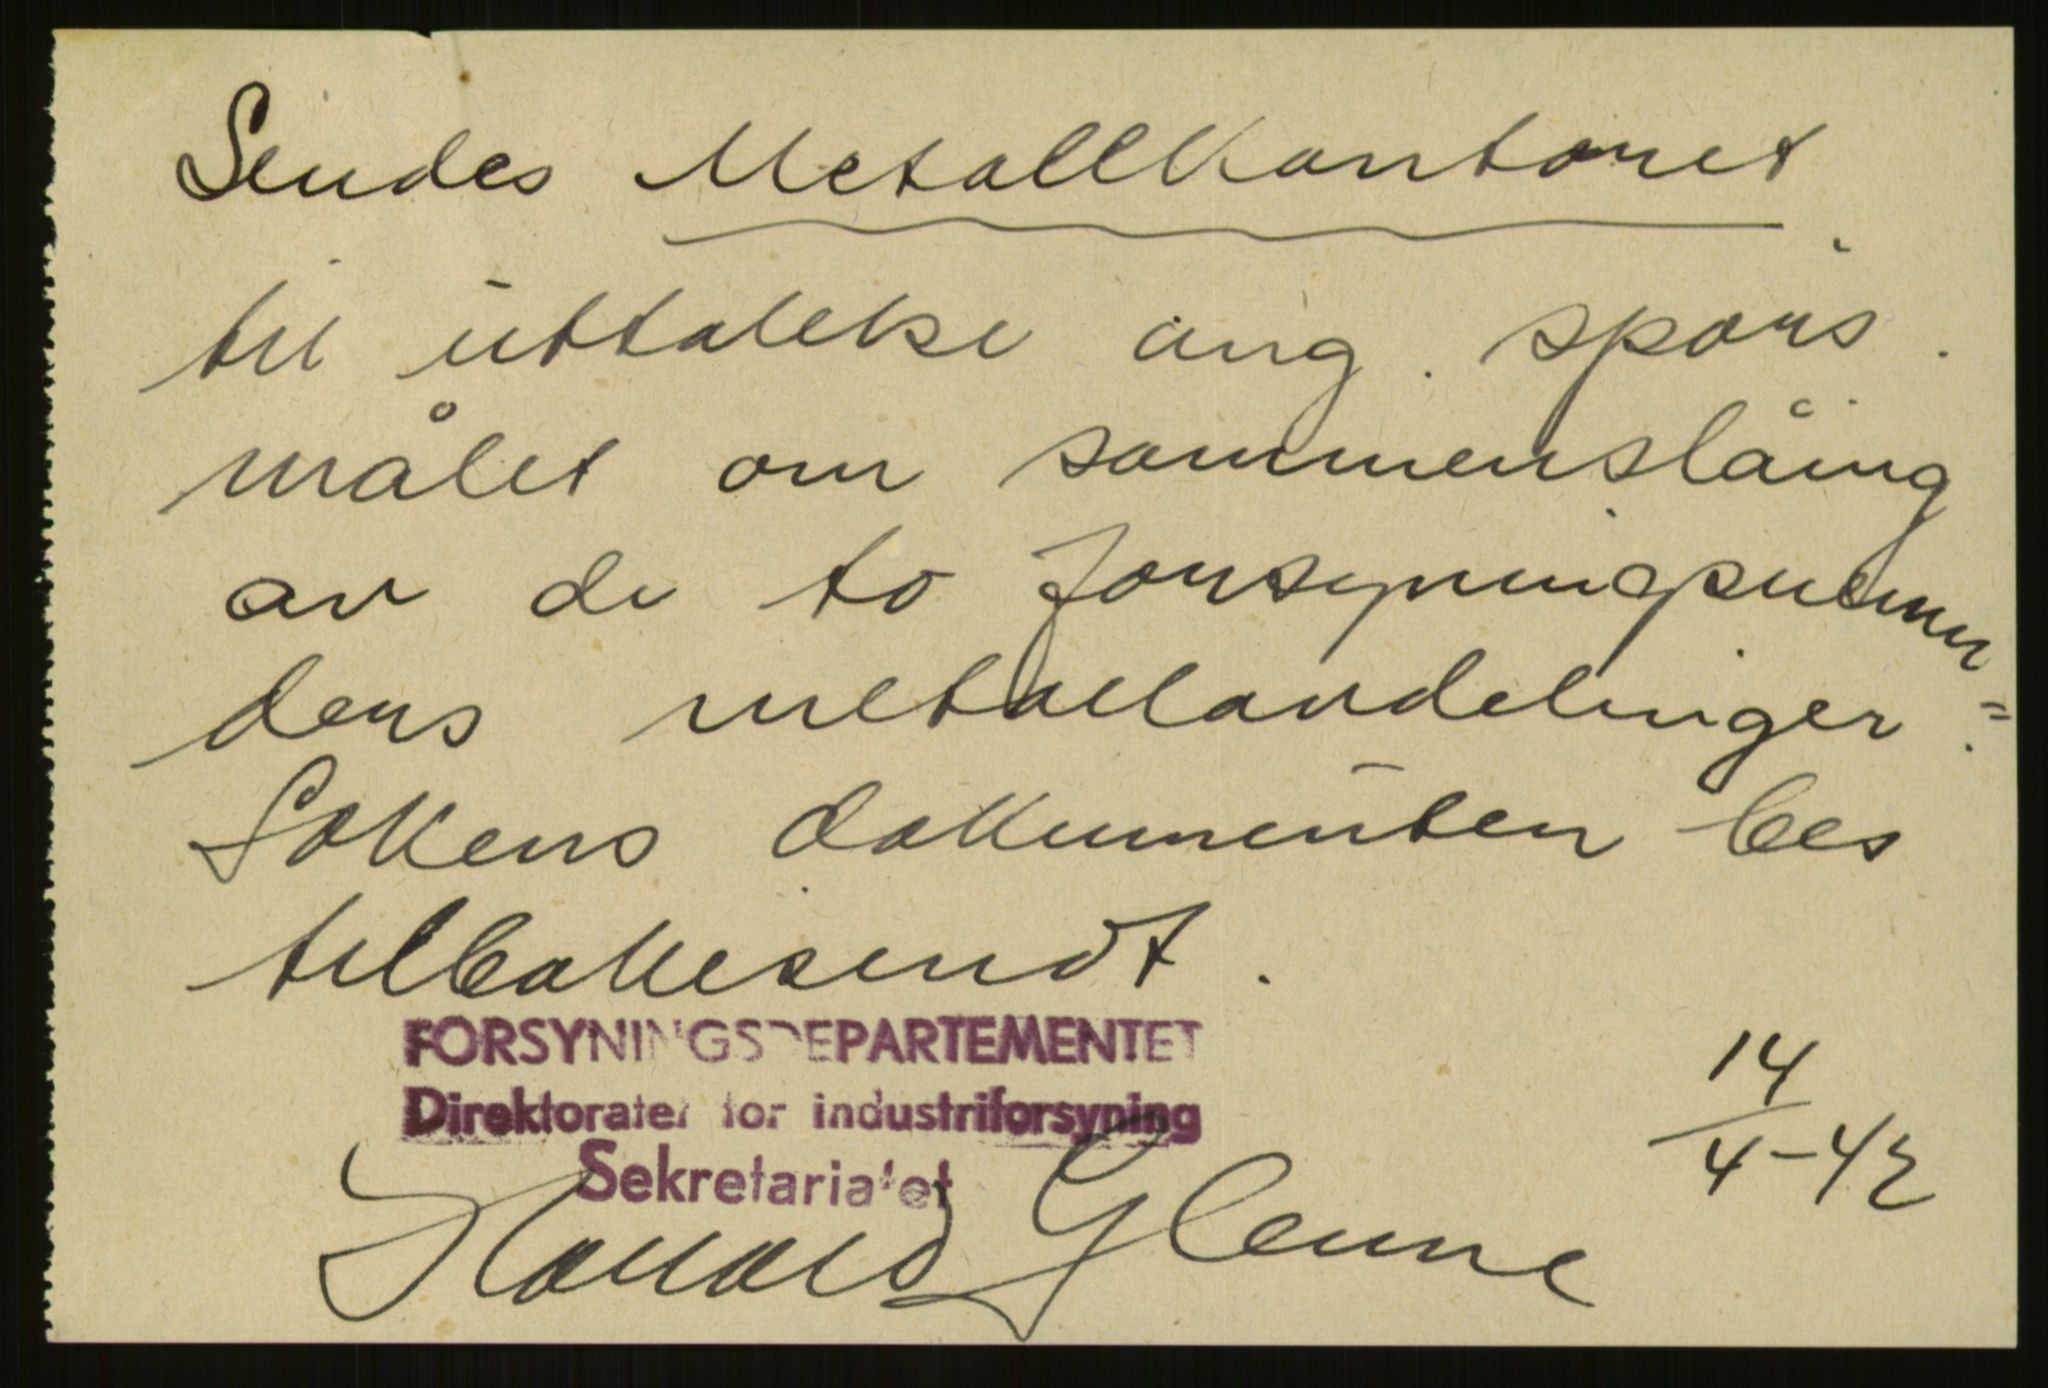 Sendes Metallkontoret
til uttalelse ang. spørs
målet om sammenslåing
av de to forsyningsnemn=
ders metallavdelinger.
Sakens dokumenter bes
tilbakesendt.
FORSYNINGSDEPARTEMENTET
Direktoratet for industriforsyning
Sekretariatet
14/4-42
Harald Glenne